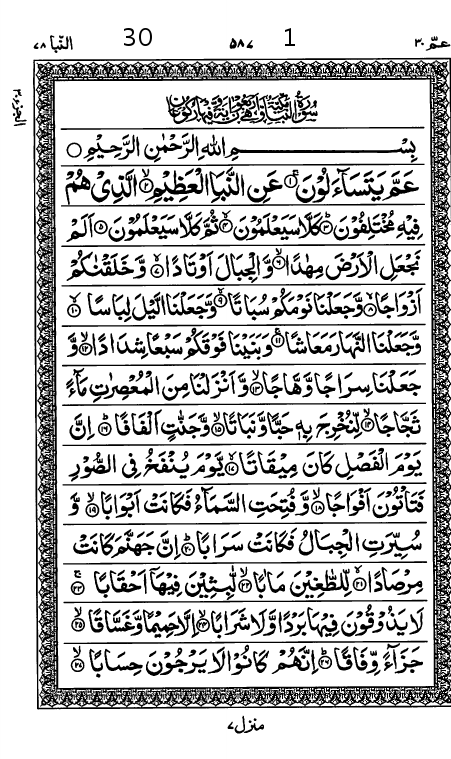 عمّ ٣٠ 1 ٥٨٧ 30 النّبا ٧٨
الجزء ٣٠
سُوْرَةُ النَّبَاِ مَكِّيَّةٌ وَّهِيَ اَرْبَعُوْنَ اٰيَةً وَّفِيْهَا رُكُوْعَانِ
بِسْــــــمِ اللهِ الرَّحْمٰنِ الرَّحِيْمِ ○
عَمَّ يَتَسَآءَلُوْنَ ۚ﴿١﴾ عَنِ النَّبَاِ الْعَظِيْمِ ۙ﴿٢﴾ الَّذِىْ هُمْ
فِيْهِ مُخْتَلِفُوْنَ ؕ﴿٣﴾ كَلَّا سَيَعْلَمُوْنَ ۙ﴿٤﴾ ثُمَّ كَلَّا سَيَعْلَمُوْنَ ﴿٥﴾ اَلَمْ
نَجْعَلِ الْاَرْضَ مِهٰدًا ۙ﴿٦﴾ وَّ الْجِبَالَ اَوْتَادًا ۪ۙ﴿٧﴾ وَّ خَلَقْنٰكُمْ
اَزْوَاجًا ۙ﴿٨﴾ وَّجَعَلْنَا نَوْمَكُمْ سُبَاتًا ۙ﴿٩﴾ وَّجَعَلْنَا الَّيْلَ لِبَاسًا ۙ﴿١٠﴾
وَّجَعَلْنَا النَّهَارَ مَعَاشًا ۪﴿١١﴾ وَبَنَيْنَا فَوْقَكُمْ سَبْعًا شِدَادًا ۙ﴿١٢﴾ وَّ
جَعَلْنَا سِرَاجًا وَّهَّاجًا ۪ۙ﴿١٣﴾ وَّ اَنْزَلْنَا مِنَ الْمُعْصِرٰتِ مَآءً
ثَجَّاجًا ۙ﴿١٤﴾ لِّنُخْرِجَ بِهٖ حَبًّا وَّنَبَاتًا ۙ﴿١٥﴾ وَّجَنّٰتٍ اَلْفَافًا ؕ﴿١٦﴾ اِنَّ
يَوْمَ الْفَصْلِ كَانَ مِيْقَاتًا ۙ﴿١٧﴾ يَّوْمَ يُنْفَخُ فِى الصُّوْرِ
فَتَاْتُوْنَ اَفْوَاجًا ۙ﴿١٨﴾ وَّ فُتِحَتِ السَّمَآءُ فَكَانَتْ اَبْوَابًا ۙ﴿١٩﴾ وَّ
سُيِّرَتِ الْجِبَالُ فَكَانَتْ سَرَابًا ؕ﴿٢٠﴾ اِنَّ جَهَنَّمَ كَانَتْ
مِرْصَادًا ۪ۙ﴿٢١﴾ لِّلطّٰغِيْنَ مَاٰبًا ۙ﴿٢٢﴾ لّٰبِثِيْنَ فِيْهَاۤ اَحْقَابًا ۚ﴿٢٣﴾
لَا يَذُوْقُوْنَ فِيْهَا بَرْدًا وَّلَا شَرَابًا ۙ﴿٢٤﴾ اِلَّا حَمِيْمًا وَّغَسَّاقًا ۙ﴿٢٥﴾
جَزَآءً وِّفَاقًا ؕ﴿٢٦﴾ اِنَّهُمْ كَانُوْا لَا يَرْجُوْنَ حِسَابًا ۙ﴿٢٧﴾
منزل ٧